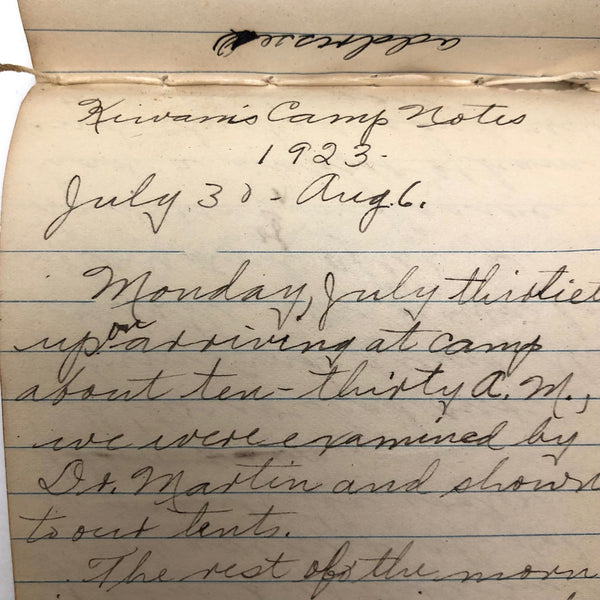 addresses
Kiwanis Camp Notes
1923.
July 30 - Aug. 6.
Monday, July thirtiet
upon arriving at camp
about ten-thirty A.M.,
we were examined by
Dr. Martin and shown
to our tents.
The rest of the morn